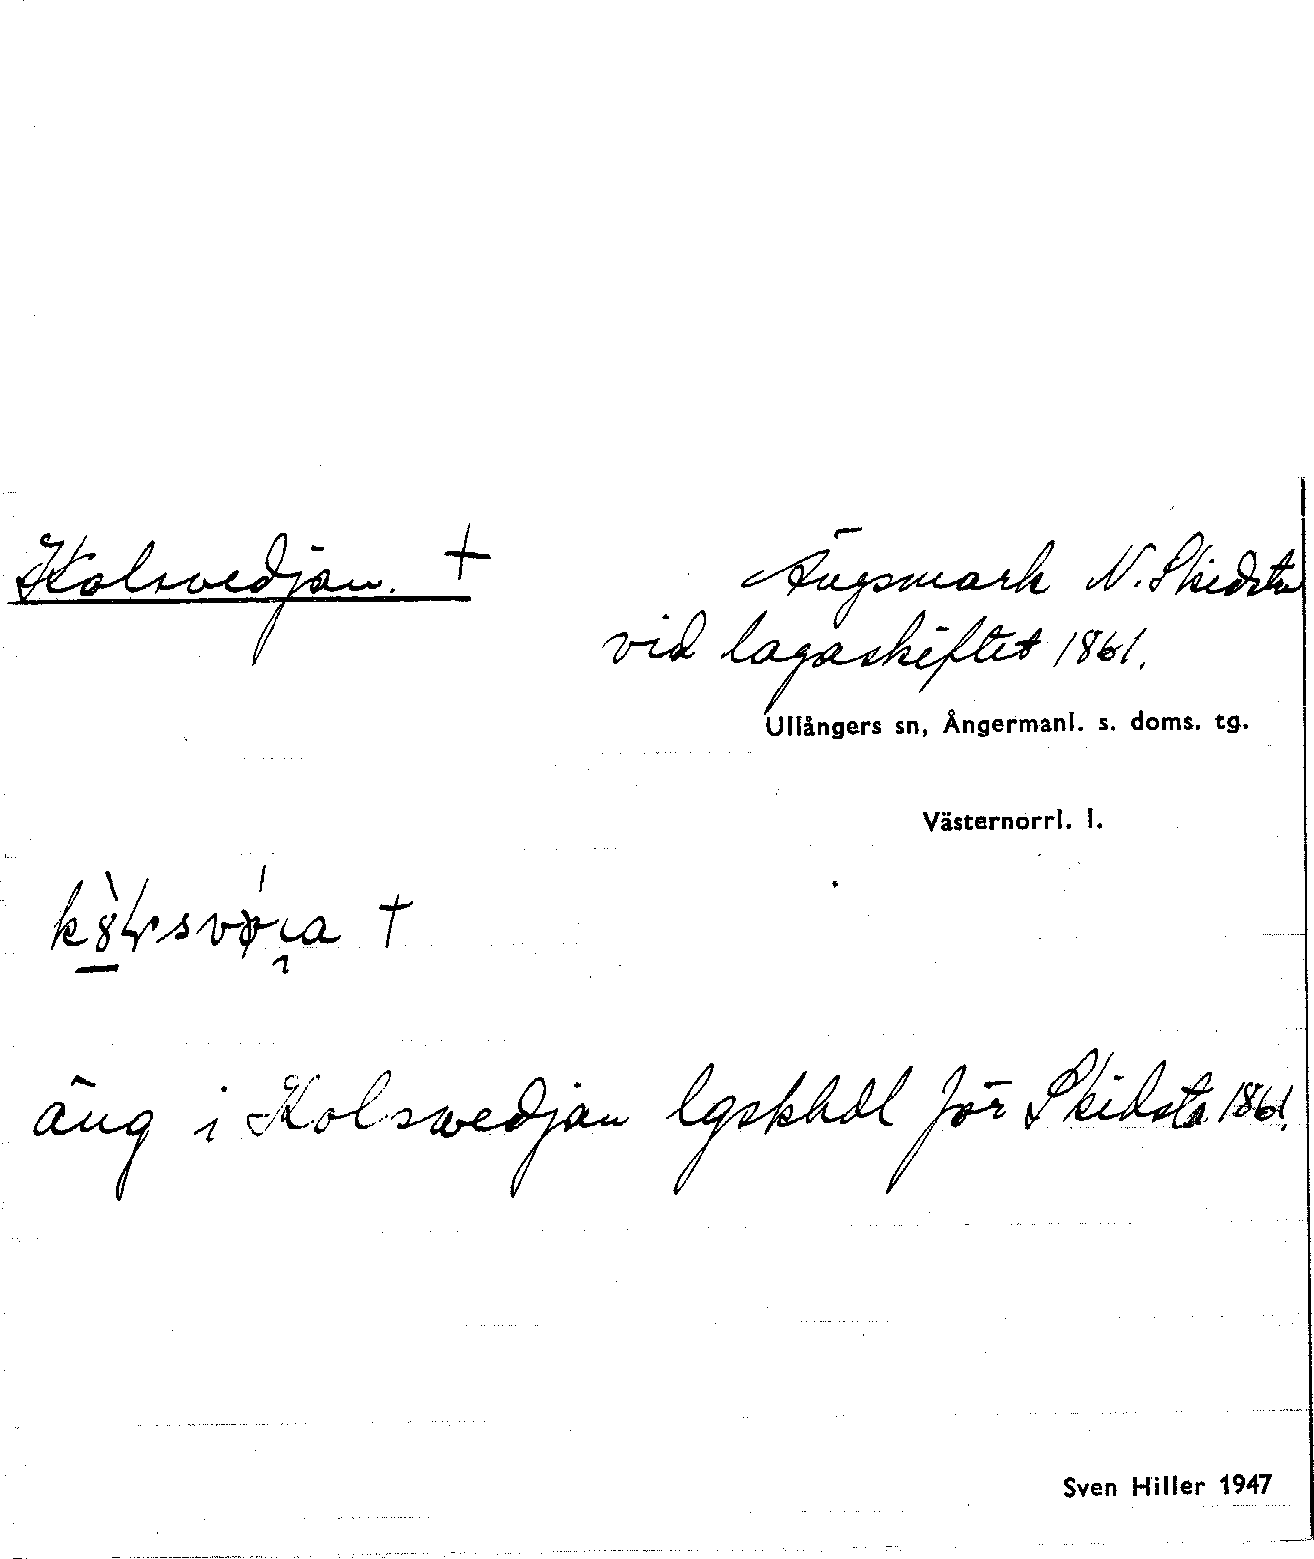 Kolsvedjan. †
Ängsmark N. Skedsta
vid lagaskiftet 1861.
Ullångers sn, Ångermanl. s. doms. tg.
Västernorrl. l.
†
äng i Kolswedjan lgskhdl för Skidsta 1861.
Sven Hiller 1947